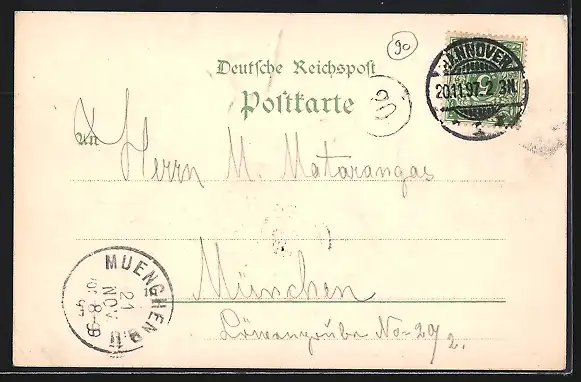 90
Deutsche Reichspost
Postkarte
90
HANNOVER
20.11.97. 2-3N.
5
An Herrn M. Matarangas
München
Löwengrube No 29 2.
MUENCHEN
21
NOV.
8-9